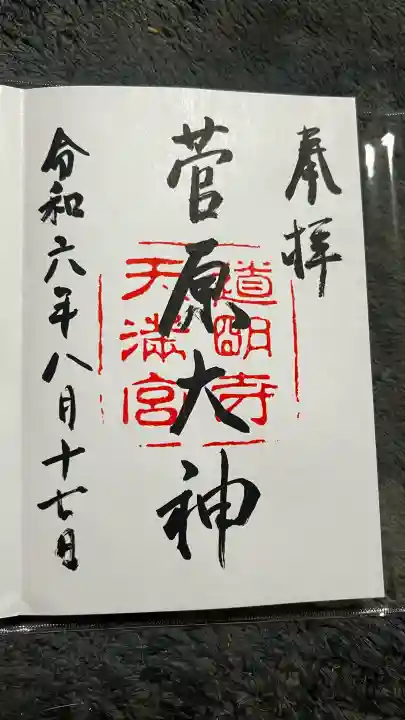 奉拝
菅原大神
道明寺
天満宮
令和六年八月十七日